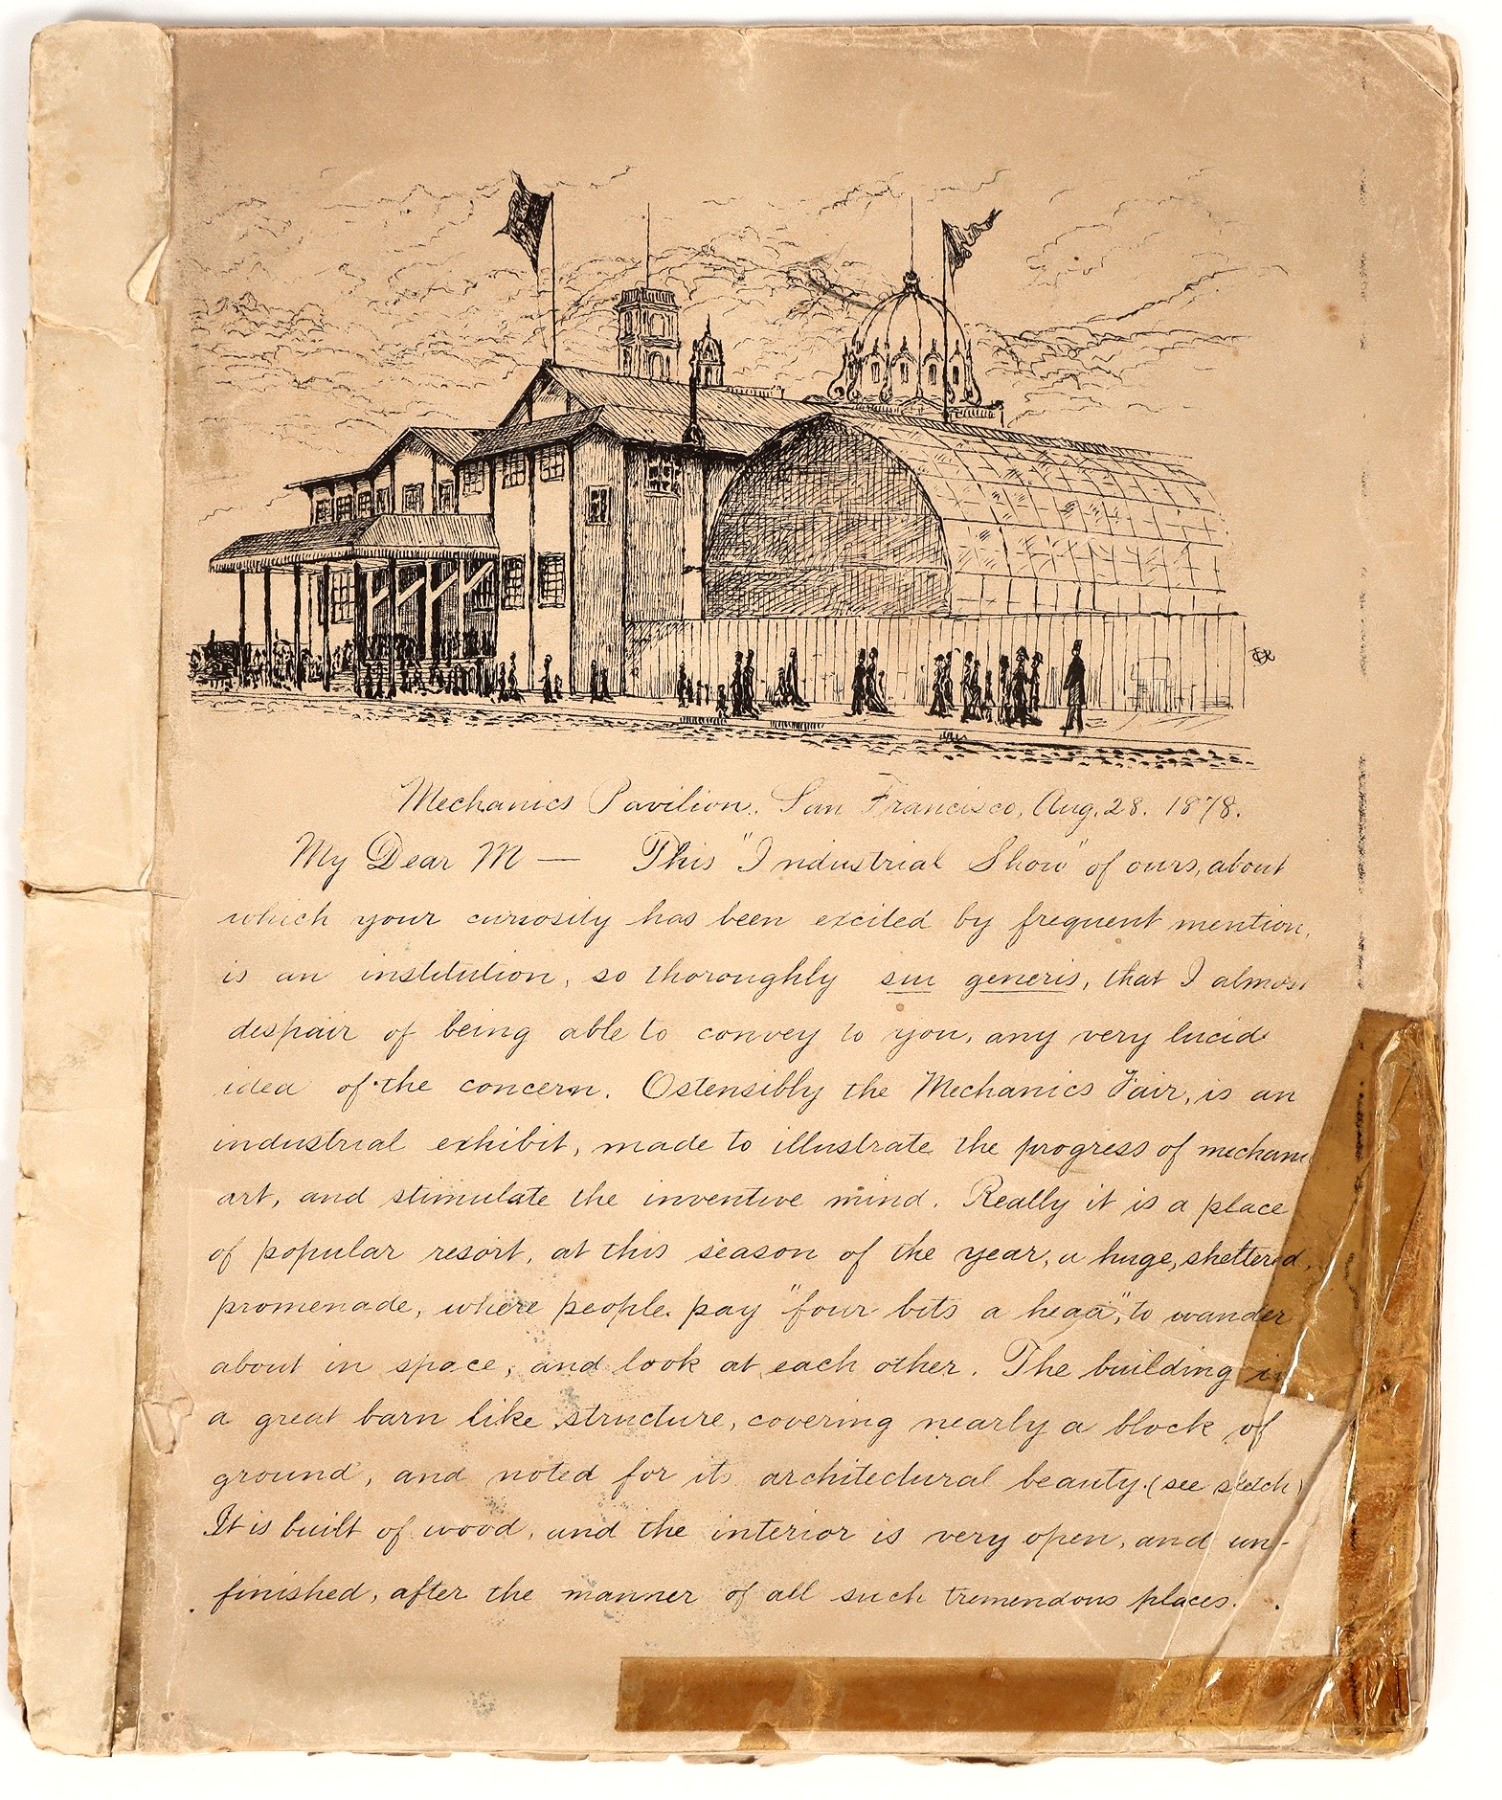 Mechanics Pavilion. San Francisco, Aug. 28. 1878.
My Dear M — This "Industrial Show" of ours, about
which your curiosity has been excited by frequent mention,
is an institution, so thoroughly sui generis, that I almost
despair of being able to convey to you, any very lucid
idea of the concern. Ostensibly the Mechanics Fair, is an
industrial exhibit, made to illustrate the progress of mechani
art, and stimulate the inventive mind. Really it is a place
of popular resort, at this season of the year, a huge, sheltered,
promenade, where people pay "four bits a head", to wander
about in space, and look at each other. The building is
a great barn like structure, covering nearly a block of
ground, and noted for its architectural beauty. (see sketch)
It is built of wood, and the interior is very open, and un-
finished, after the manner of all such tremendous places.